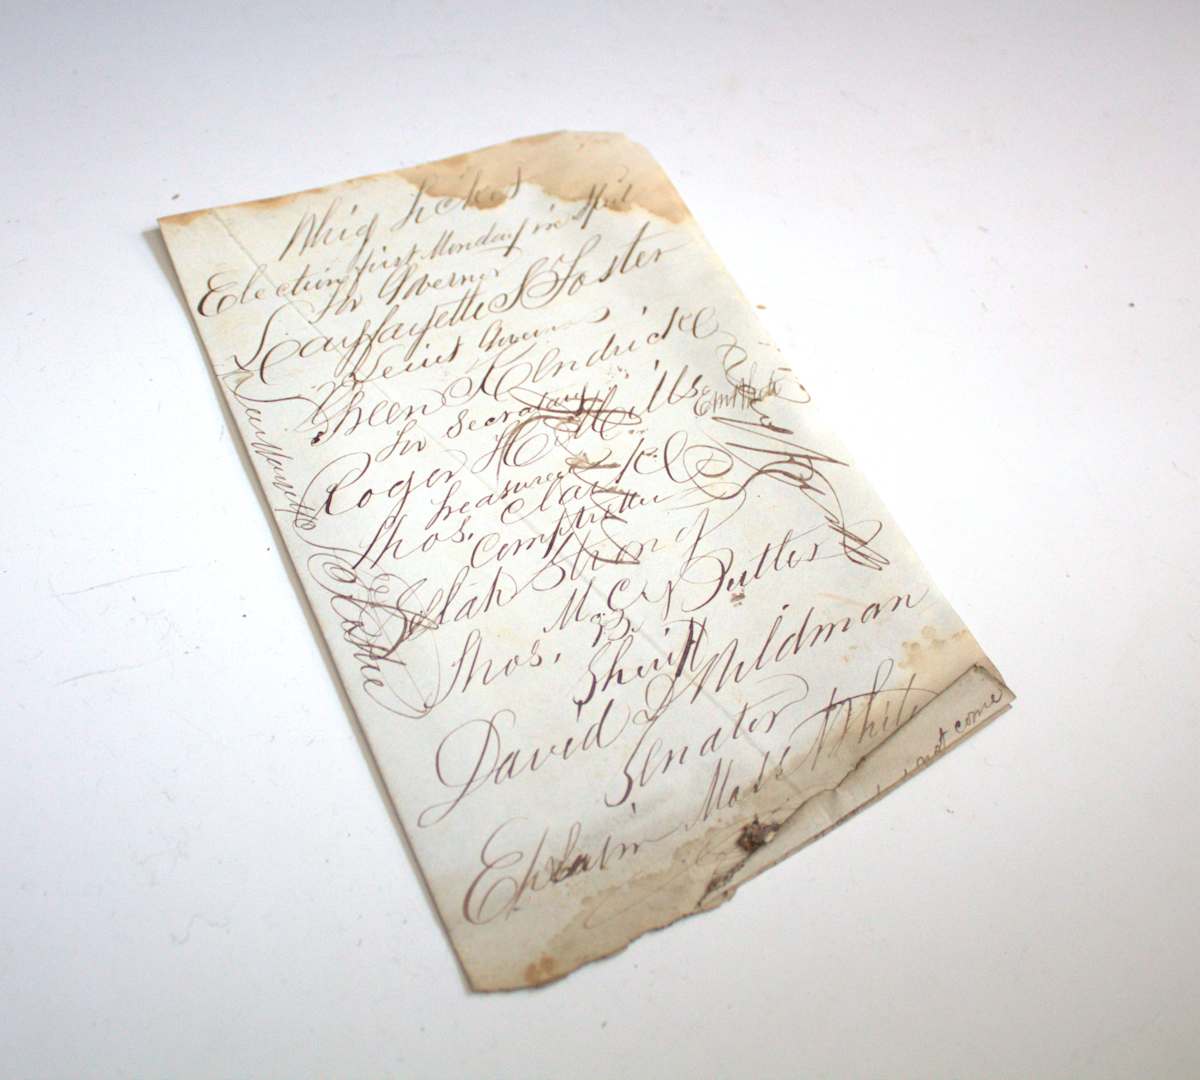 Whig Ticket
Election first Monday in April
for Governor
Lauffayette S Foster
Leiut Govener
Green Kendrick
for Secratary
Roger H Mills
Treasurer
Thos. Clark
Comptroller
Selah Strong
M. C.
Thos. B. Butler
Sheriff
David J Wildman
Senator
Ephraim Mods White
not come